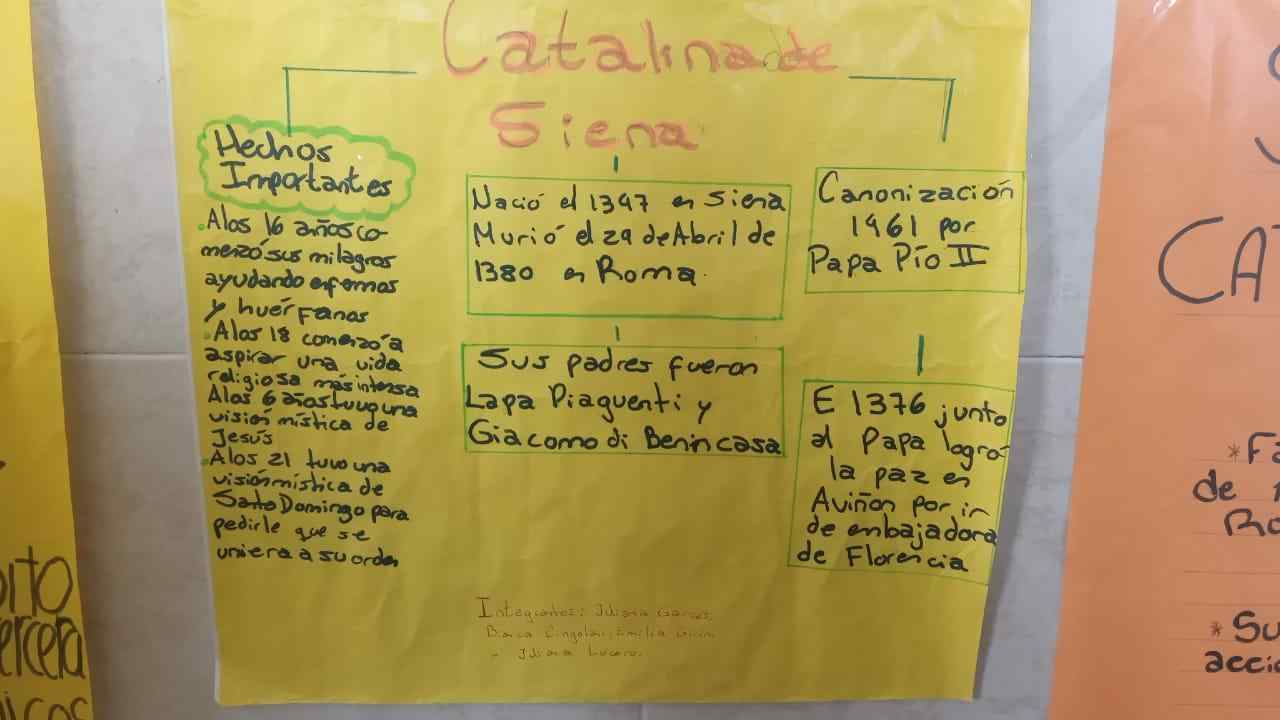 Catalina de
Siena
Hechos
Importantes
.Alos 16 años co
menzó sus milagros
ayudando enfermos
y huérfanos
.Alos 18 comenzó a
aspirar una vida
religiosa más intensa
Alos 6 años tuvo una
visión mística de
Jesús
.Alos 21 tuvo una
visión mística de
Santo Domingo para
pedirle que se
uniera a su orden
Nació el 1347 en Siena
Murió el 29 de Abril de
1380 en Roma.
Sus padres fueron
Lapa Piaguenti y
Giacomo di Benincasa
Canonización
1461 por
Papa Pío II
E 1376 junto
al Papa logró
la paz en
Aviñon por ir
de embajadora
de Florencia
Integrantes:
CAT
*Fa
de
Ro
*Su
acci
tercera
icos